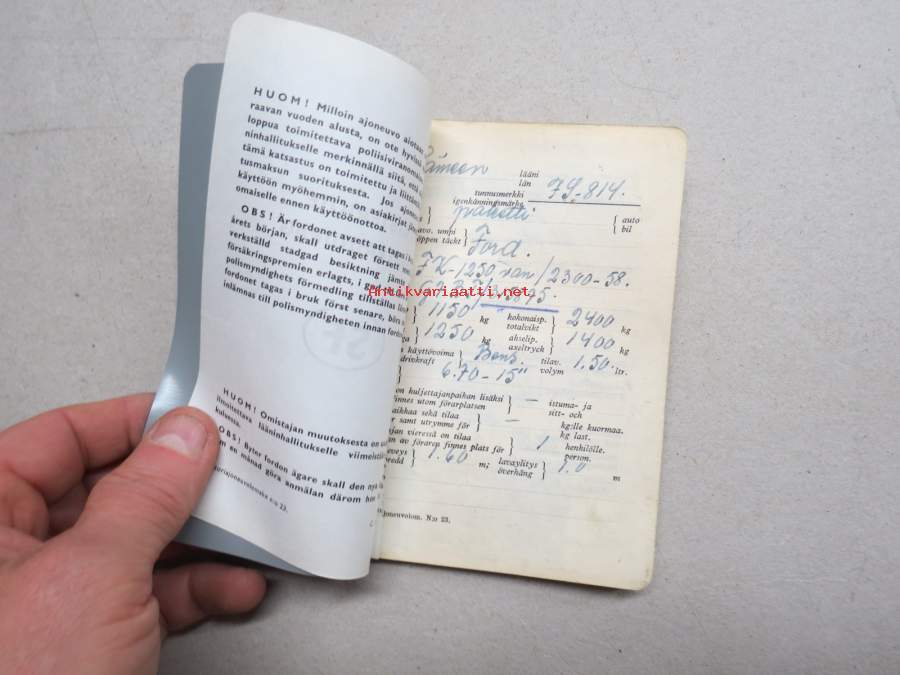 HUOM! Milloin ajoneuvo aiotaan
raavan vuoden alusta, on ote hyvissä
loppua toimitettava poliisiviranomai
ninhallitukselle merkinnällä siitä, että
tämä katsastus on toimitettu ja liittämä
tusmaksun suorituksesta. Jos ajoneu
käyttöön myöhemmin, on asiakirjat jät
omaiselle ennen käyttöönottoa.
OBS! Är fordonet avsett att tagas i br
årets början, skall utdraget försett med
verkställd stadgad besiktning jämte
försäkringspremien erlagts, i god
polismyndighets förmedling tillställas län
fordonet tagas i bruk först senare, böra
inlämnas till polismyndigheten innan fordo
HUOM! Omistajan muutoksesta on uud
ilmoitettava lääninhallitukselle viimeistä
kuluessa.
OBS! Byter fordon ägare skall den nya
en månad göra anmälan därom hos
n:o 23.
Hämeen lääni
län
tunnusmerkki
igenkänningsmärke
ZS-814.
paketti { auto
bil
avo. umpi
öppen täckt } Ford.
FK-1250 van/2300-58.
Antikvariaatti.net
1150 kg kokonaisp.
totalvikt } 2400 kg
1250 kg akselip.
axeltryck } 1400 kg
käyttövoima
drivkraft } Bens. tilav.
volym 1.50 ltr.
6.70-15"
on kuljettajanpaikan lisäksi
finnes utom förarplatsen } — istuma- ja
sitt- och
paikkaa sekä tilaa
samt utrymme för } — kg:lle kuormaa.
kg last.
jan vieressä on tilaa
en av förarep finnes plats för } 1 henkilölle.
person.
leveys
bredd } 1.60 m; lavaylitys
överhäng } 1.0 m
joneuvolom. N:o 23.